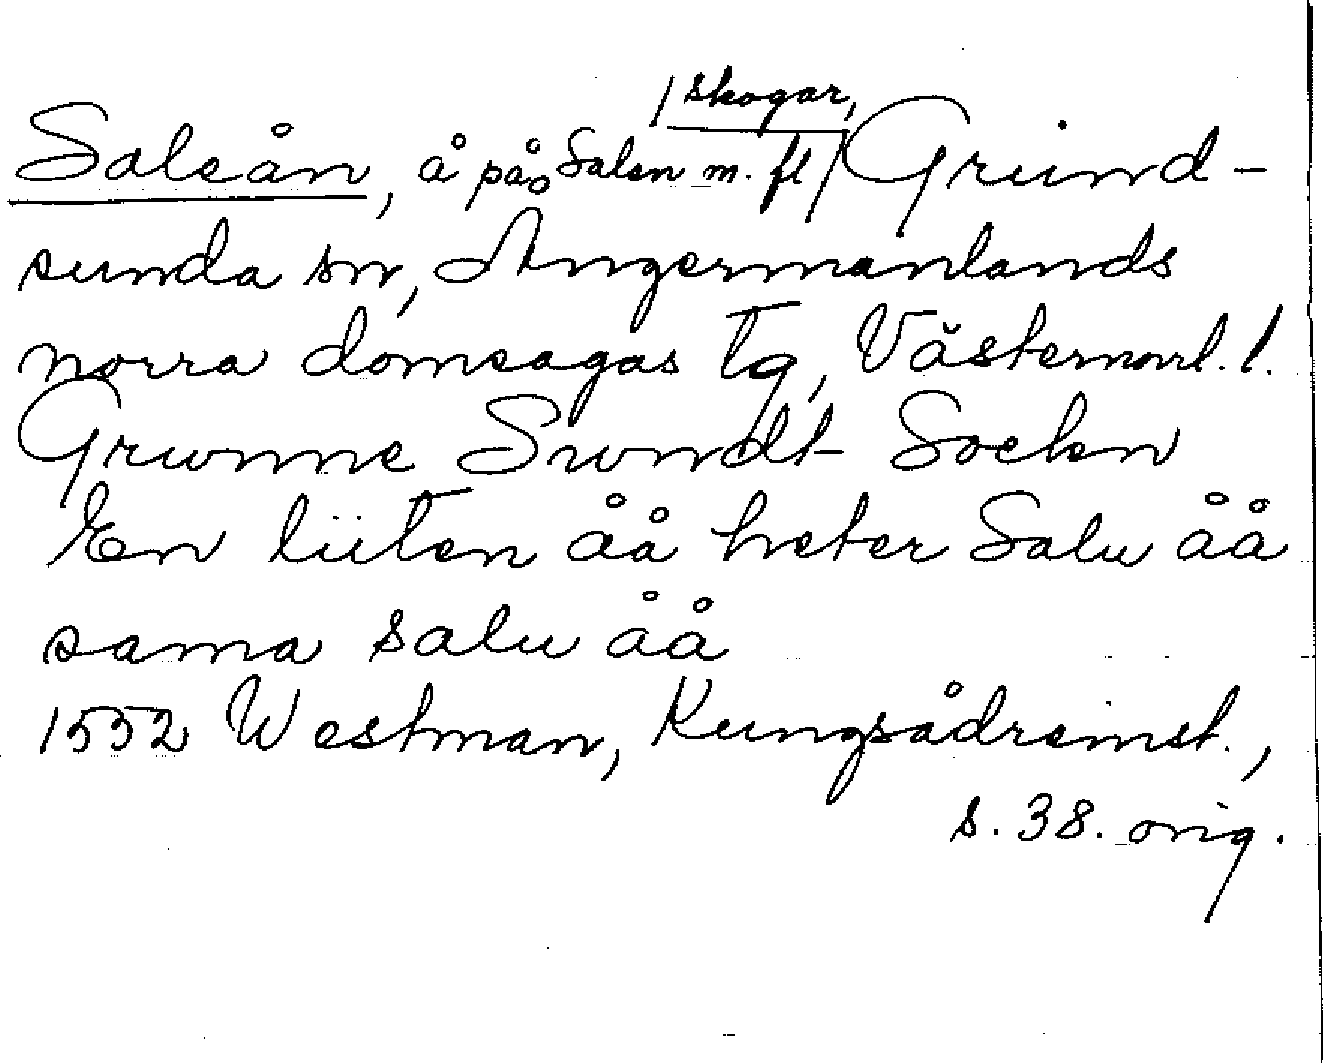 Saleån, å på Salen m. fl / skogar, / Grund-
sunda sn, Ångermanlands
norra domsagas tg, Västernorrl. l.
Grwnne Swndt Sockn
En liiten åå heter Salu åå
sama salu åå
1552 Westman, Kungsådreinst.,
s. 38. orig.